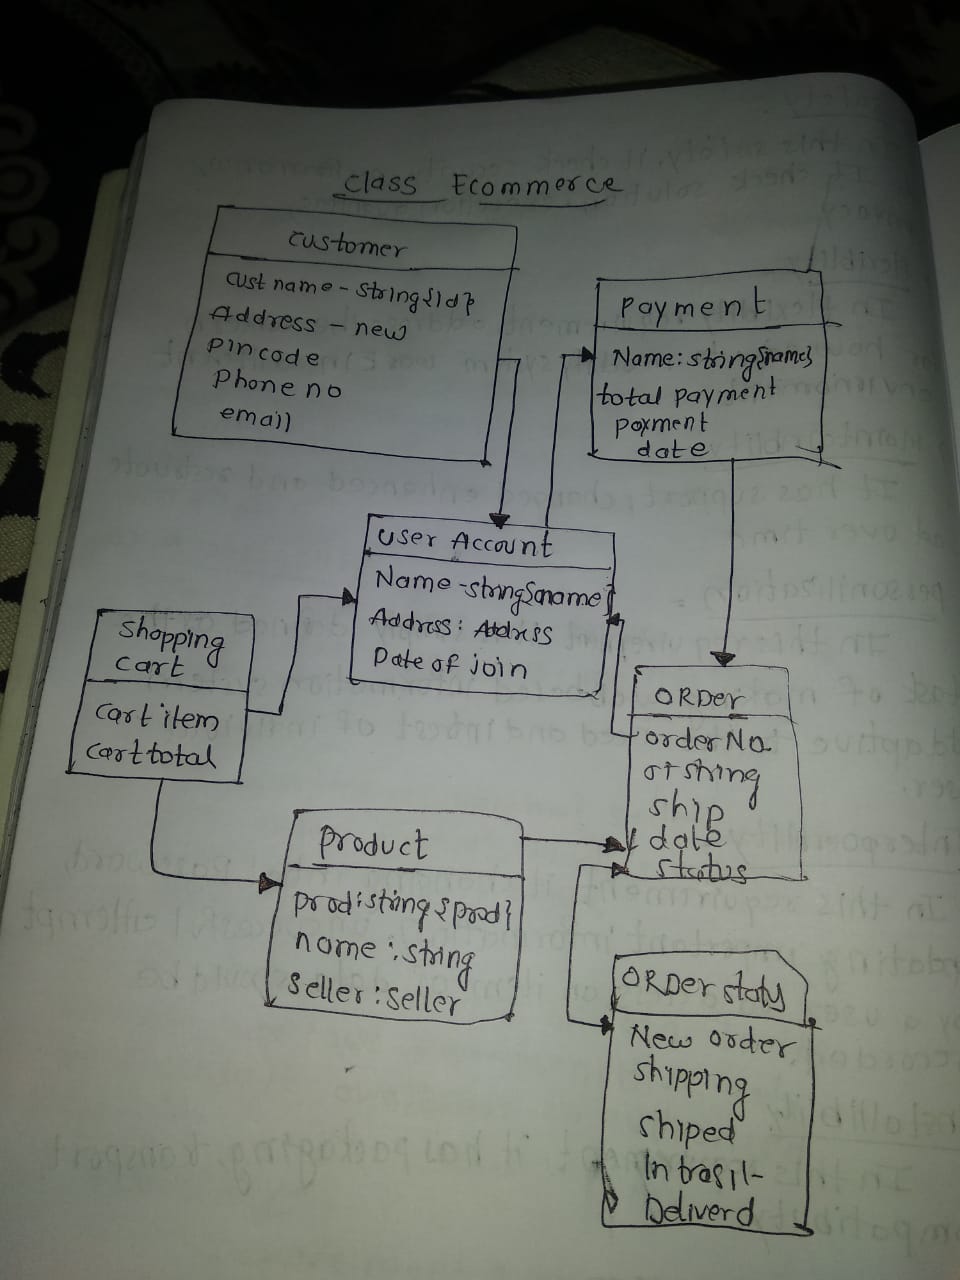 class Ecommerce
customer
cust name - string {Id}
Address - new
pincode
Phone no
email
Payment
Name: string {name}
total payment
payment
date
user Account
Name - string {name}
Address: Address
Date of join
shopping
cart
cart item
cart total
ORDer
order No
string
ship
date
status
product
prod: string {prod}
name: string
seller: seller
ORDer staty
New order
shipping
shiped
In trasit-
Deliverd